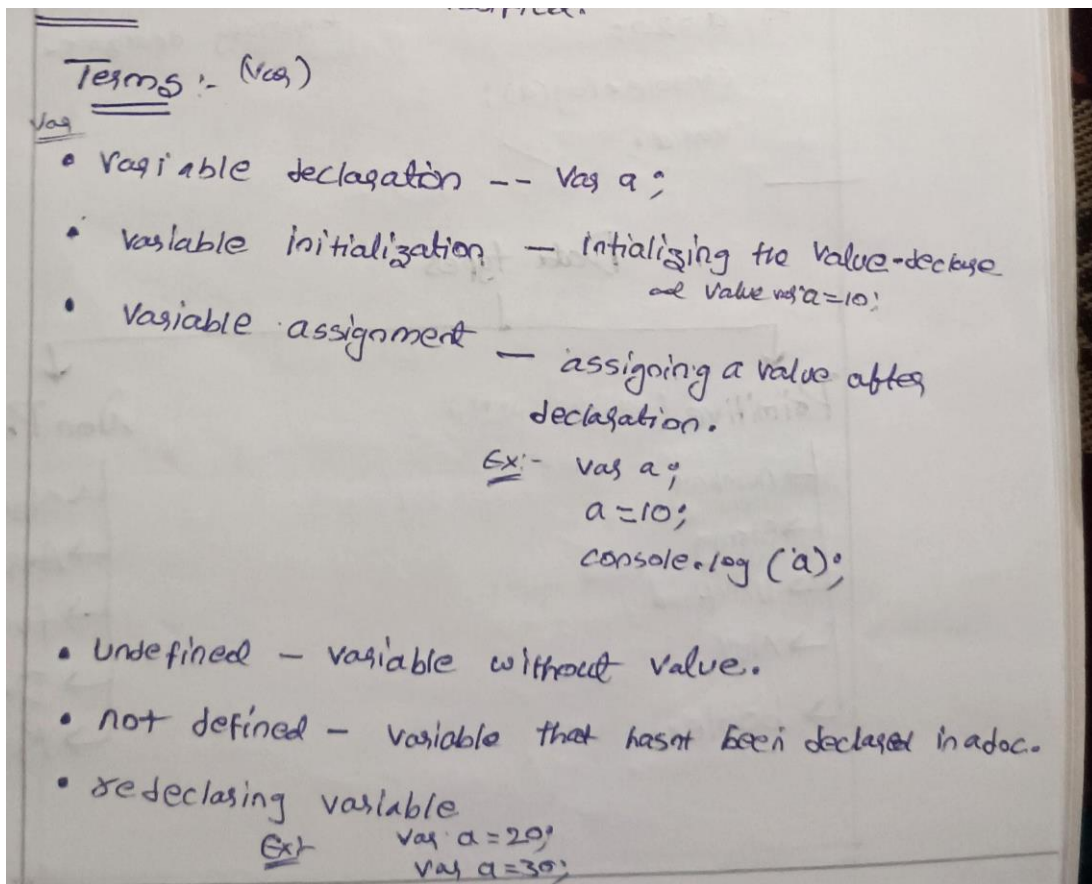 Terms :- (var)
var
• variable declaration -- Var a;
• variable initialization — intializing the value-declare
and value var a=10;
• variable assignment — assigning a value after
declaration.
Ex:- var a;
a=10;
console.log (a);
• undefined — variable without value.
• not defined — variable that hasnt been declared in a doc.
• redeclaring variable
Ex:- var a=20;
var a=30;